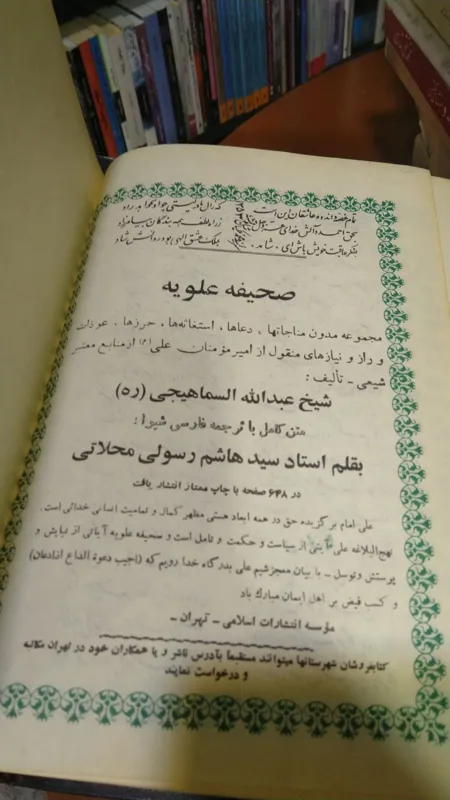 صحیفه علویه
مجموعه مدون مناجاتها ، دعاها ، استغاثه‌ها ، حرزها ، عوذات
و راز و نیازهای منقول از امیر مؤمنان علی (ع) از منابع معتبر
شیعی - تألیف :
شیخ عبدالله السماهیجی (ره)
متن کامل با ترجمه فارسی شیوا :
بقلم استاد سید هاشم رسولی محلاتی
در ۶۴۸ صفحه با چاپ ممتاز انتشار یافت
علی امام برگزیده حق در همه ابعاد هستی مظهر کمال و تمامیت انسانی خدائی است .
نهج‌البلاغه علی آیتی از سیاست و حکمت و تامل است و صحیفه علویه آیاتی از نیایش و
پرستش و توسل - با بیان معجزشیم علی بدرگاه خدا رویم که (اجیب دعوة الداع اذادعان)
و کسب فیض بر اهل ایمان مبارک باد
مؤسسه انتشارات اسلامی - تهران -
کتابفروشان شهرستانها میتوانند مستقیما بآدرس ناشر و یا همکاران خود در تهران مکاتبه
و درخواست نمایند